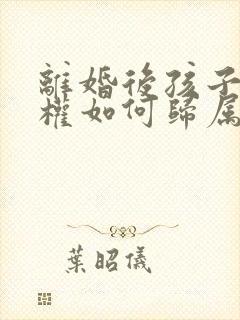 離婚後孩子
權如何歸属
葉昭儀